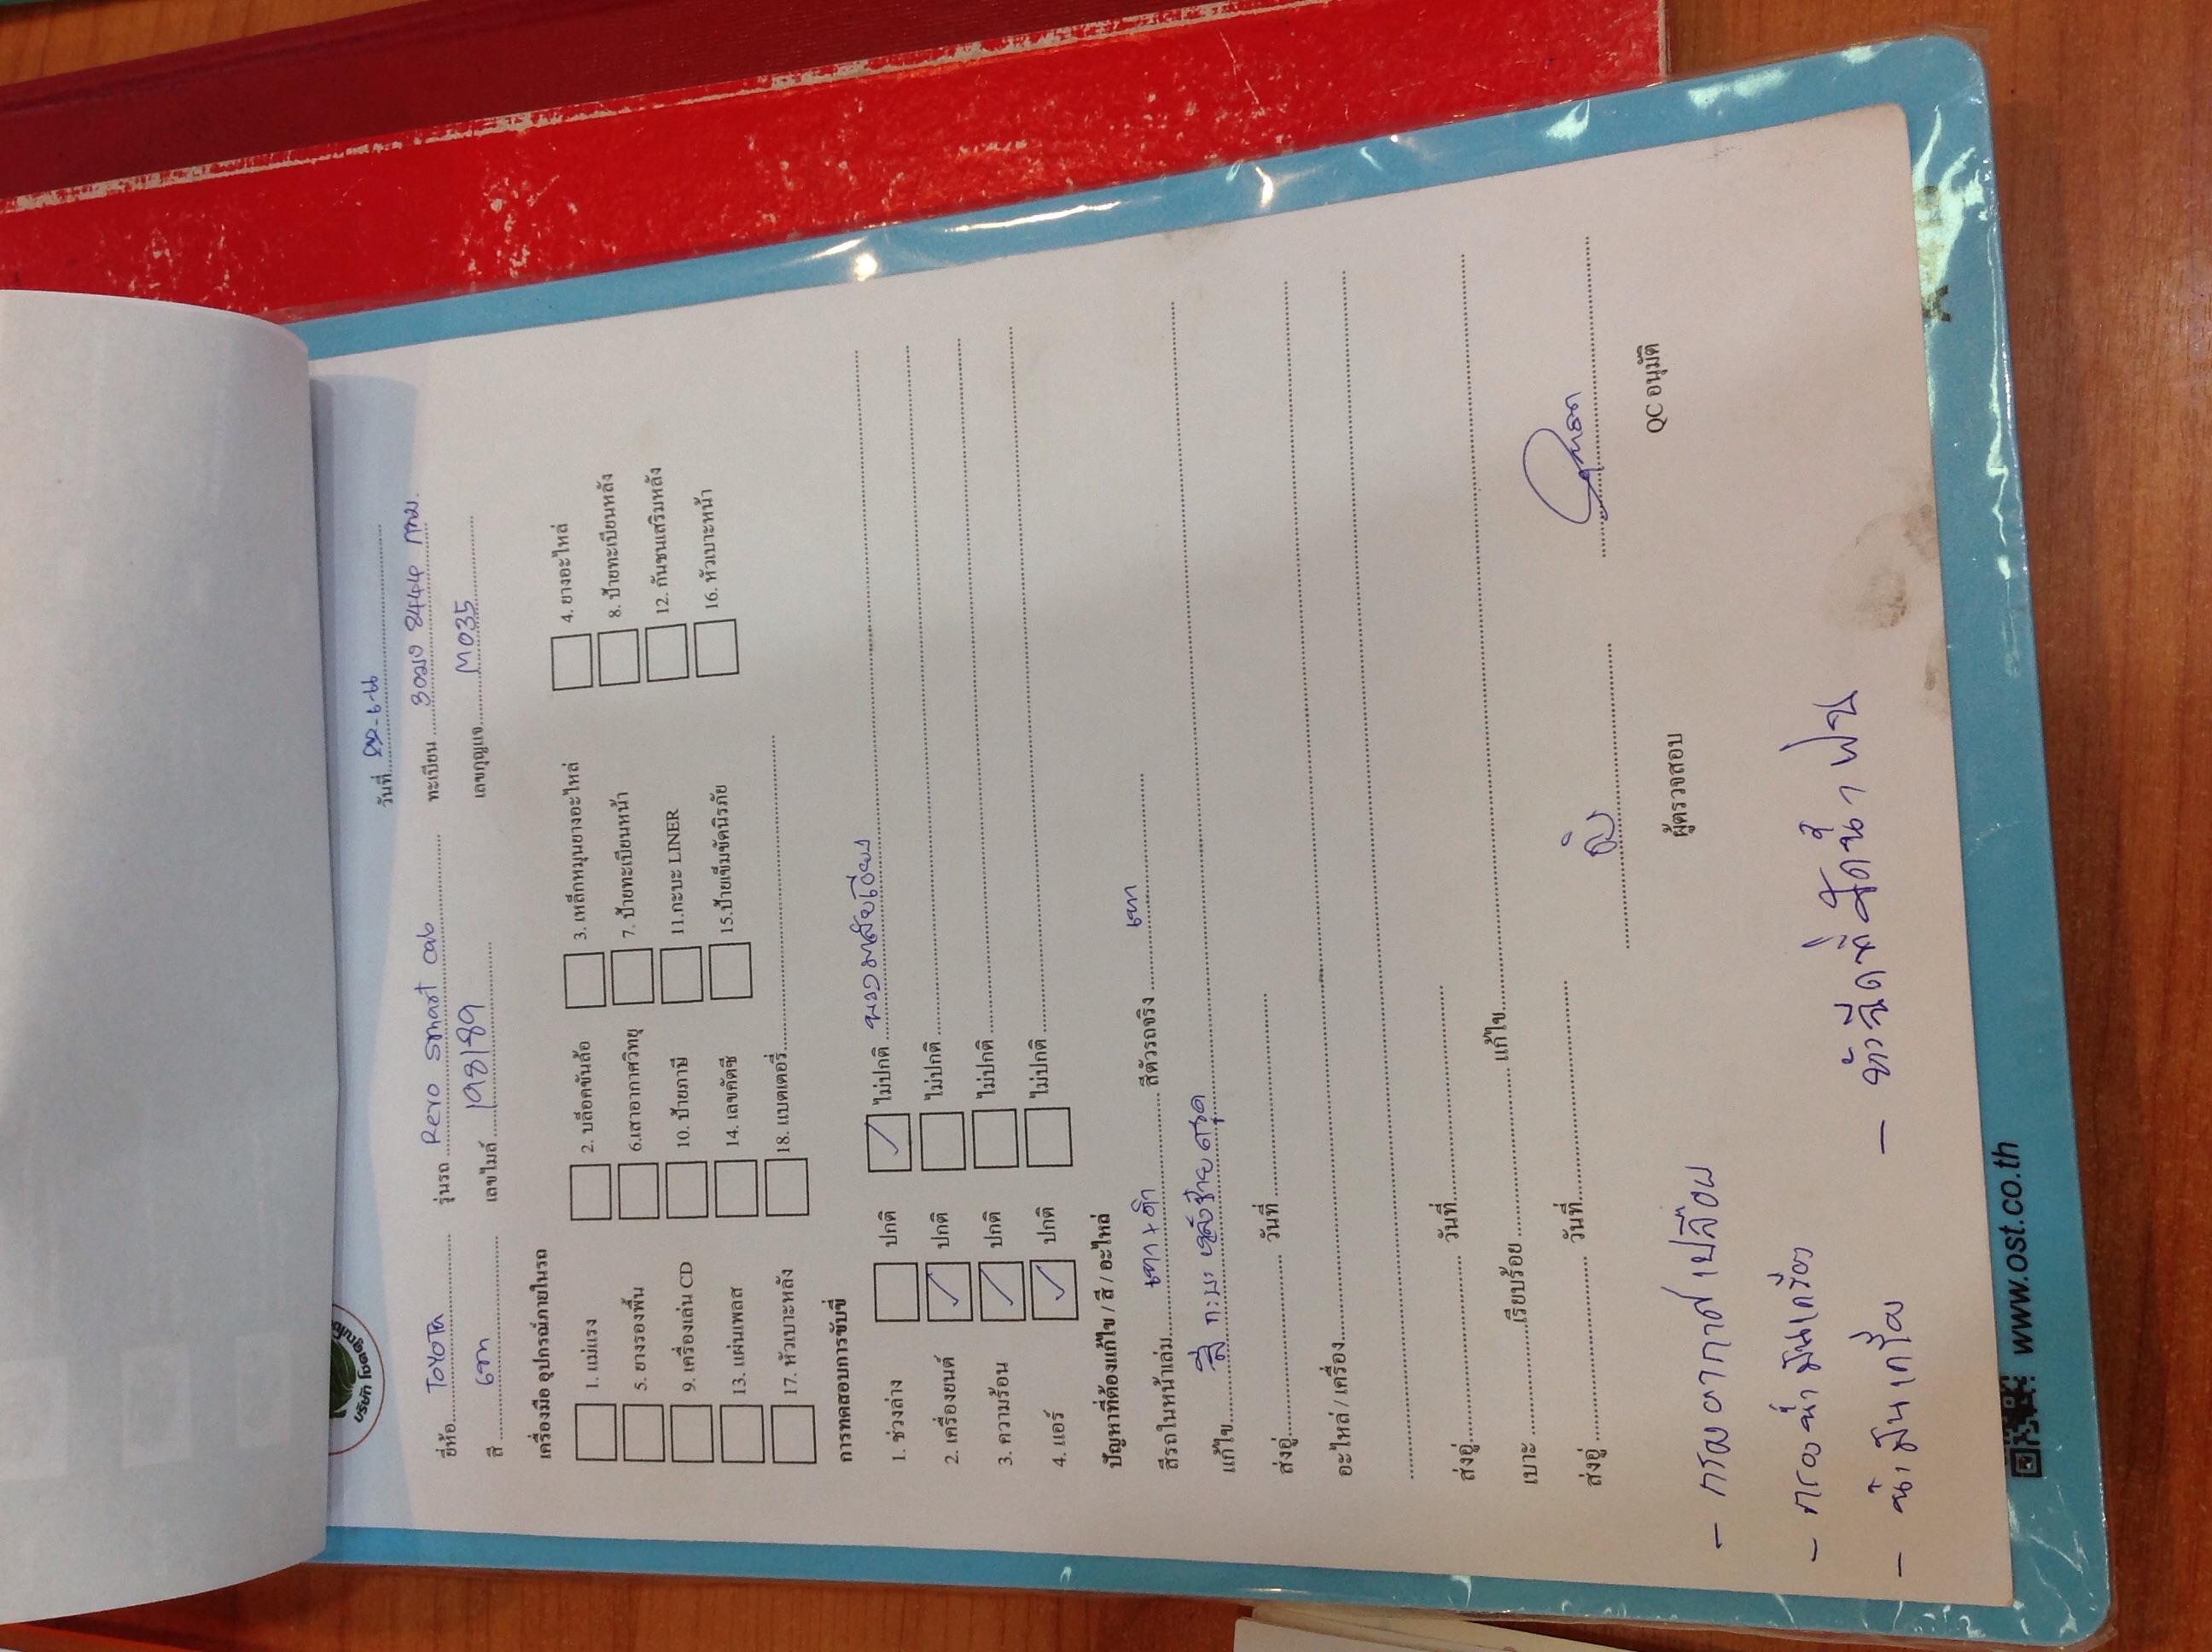 บริษัท โชคอนุ
วันที่
ยี่ห้อ TOYOTA รุ่นรถ Revo smart cab ทะเบียน 3ฒง 8444 กทม.
สี เทา เลขไมล์ 198189 เลขกุญแจ M035
เครื่องมือ อุปกรณ์ภายในรถ
1. แม่แรง 2. บล็อคขันล้อ 3. เหล็กหมุนยางอะไหล่ 4. ยางอะไหล่
5. ยางรองพื้น 6.เสาอากาศวิทยุ 7. ป้ายทะเบียนหน้า 8. ป้ายทะเบียนหลัง
9. เครื่องเล่น CD 10. ป้ายภาษี 11.กะบะ LINER 12. กันชนเสริมหลัง
13. แผ่นเพลส 14. เลขคัตซี 15.ป้ายเข็มขัดนิรภัย 16. หัวเบาะหน้า
17. หัวเบาะหลัง 18. แบตเตอรี่
การทดสอบการขับขี่
1. ช่วงล่าง ปกติ ✓ ไม่ปกติ พวงมาลัยเอียง
2. เครื่องยนต์ ✓ ปกติ ไม่ปกติ
3. ความร้อน ✓ ปกติ ไม่ปกติ
4. แอร์ ✓ ปกติ ไม่ปกติ
ปัญหาที่ต้องแก้ไข / สี / อะไหล่
สีรถในหน้าเล่ม เทา+ดำ สีตัวรถจริง เทา
แก้ไข สี กะบะ หลังซ้ายครูด
ส่งอู่ วันที่
อะไหล่ / เครื่อง
ส่งอู่ วันที่
เบาะ เรียบร้อย แก้ไข
ส่งอู่ วันที่
ผู้ตรวจสอบ QC อนุมัติ
- กรองอากาศเปลือย
- กรองน้ำมันเครื่อง
- น้ำมันเครื่อง - หัวฉีดที่ฉีดน้ำฝน
www.ost.co.th